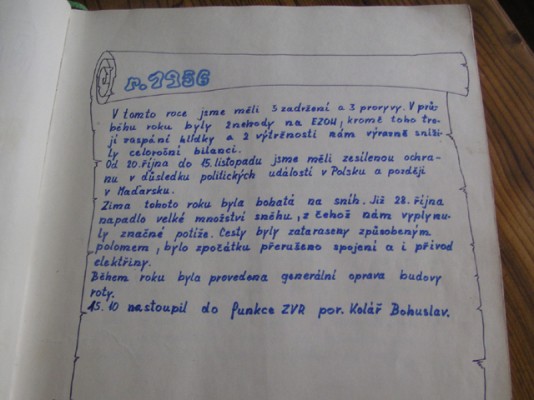 r. 1956
V tomto roce jsme měli 5 zadržení a 3 proryvy. V prů-
běhu roku byly 2 nehody na EZOH, kromě toho tro-
jí zaspání hlídky a 2 výtržnosti nám výrazně sníži-
ly celoroční bilanci.
Od 20. října do 15. listopadu jsme měli zesílenou ochra-
nu v důsledku politických událostí v Polsku a později
v Maďarsku.
Zima tohoto roku byla bohatá na sníh. Již 28. října
napadlo velké množství sněhu, z čehož nám vyplynu-
ly značné potíže. Cesty byly zataraseny způsobeným
polomem, bylo zpočátku přerušeno spojení a i přívod
elektřiny.
Během roku byla provedena generální oprava budovy
roty.
15. 10 nastoupil do funkce ZVR por. Kolář Bohuslav.